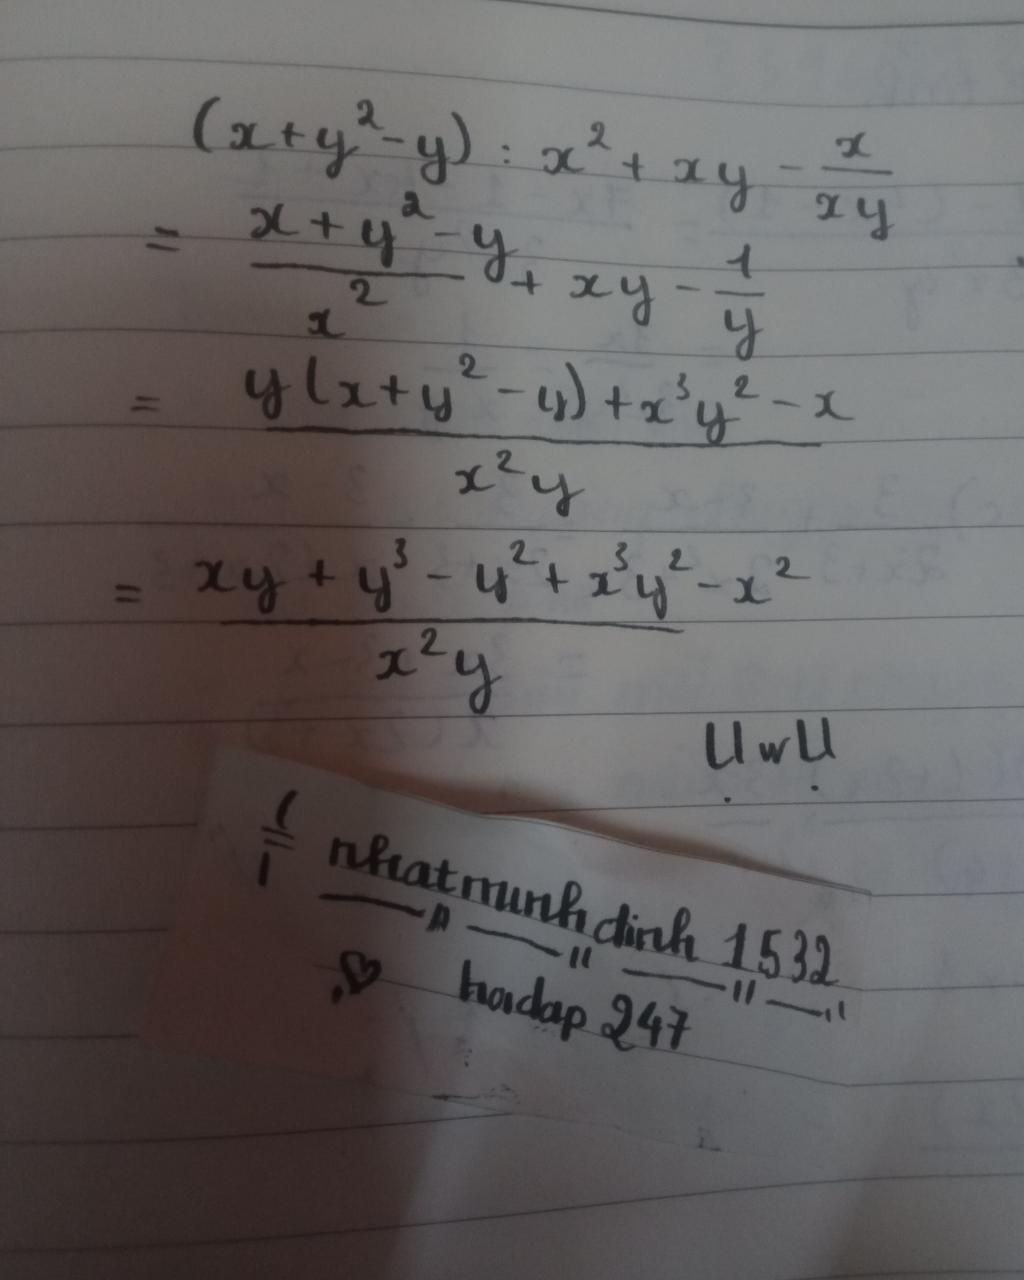 (x + y² - y) : x² + xy - x/xy
= (x + y² - y)/x² + xy - 1/y
= (y(x + y² - y) + x³y² - x)/x²y
= (xy + y³ - y² + x³y² - x²)/x²y
UwU
nhatminhdinh 1532
hoidap 247